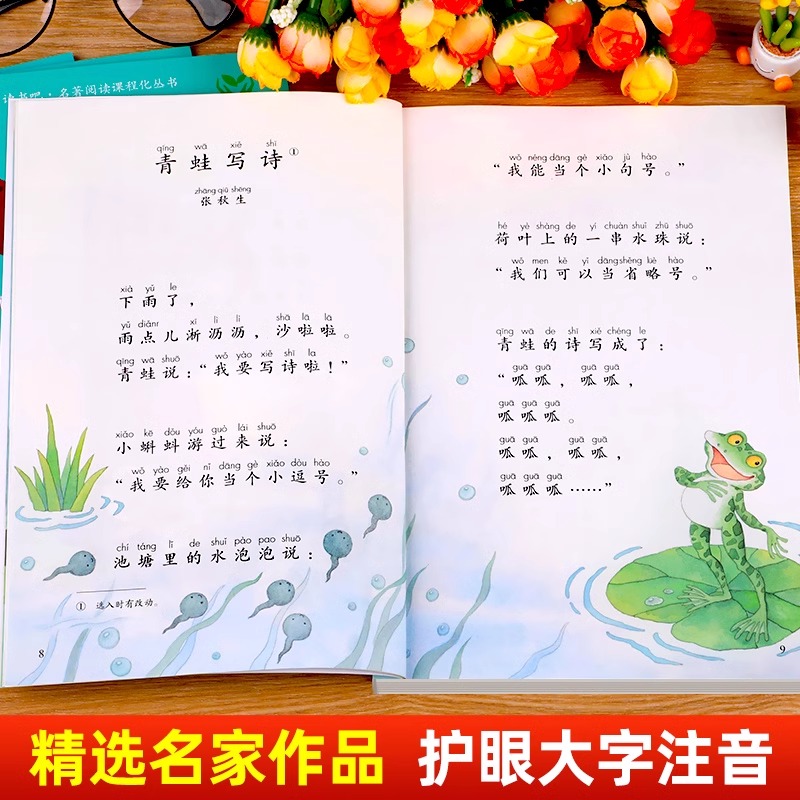 书吧·名著阅读课程化丛书
qīng wā xiě shī
青蛙写诗①
zhāng qiū shēng
张秋生
xià yǔ le
下雨了，
yǔ diǎnr xī lì lì shā lā lā
雨点儿淅沥沥，沙啦啦。
qīng wā shuō wǒ yào xiě shī la
青蛙说：“我要写诗啦！”
xiǎo kē dǒu yóu guò lái shuō
小蝌蚪游过来说：
wǒ yào gěi nǐ dāng gè xiǎo dòu hào
“我要给你当个小逗号。”
chí táng lǐ de shuǐ pào pao shuō
池塘里的水泡泡说：
① 选入时有改动。
8
wǒ néng dāng gè xiǎo jù hào
“我能当个小句号。”
hé yè shàng de yí chuàn shuǐ zhū shuō
荷叶上的一串水珠说：
wǒ men kě yǐ dāng shěng lüè hào
“我们可以当省略号。”
qīng wā de shī xiě chéng le
青蛙的诗写成了：
guā guā guā guā
“呱呱，呱呱，
guā guā guā
呱呱呱。
guā guā guā guā
呱呱，呱呱，
guā guā guā
呱呱呱……”
9
精选名家作品 护眼大字注音